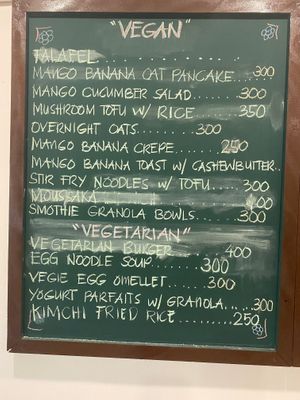 "VEGAN"
FALAFEL..........
MANGO BANANA OAT PANCAKE...300
MANGO CUCUMBER SALAD.....300
MUSHROOM TOFU W/ RICE....350
OVERNIGHT OATS......300
MANGO BANANA CREPE.....250
MANGO BANANA TOAST W/ CASHEWBUTTER..
STIR FRY NOODLES W/ TOFU...300
MOUSSAKA 400
SMOTHIE GRANOLA BOWLS....300
"VEGETARIAN"
VEGETARIAN BURGER....400
EGG NOODLE SOUP.....300
VEGIE EGG OMELLET.....300
YOGURT PARFAITS W/ GRANOLA...300
KIMCHI FRIED RICE......250